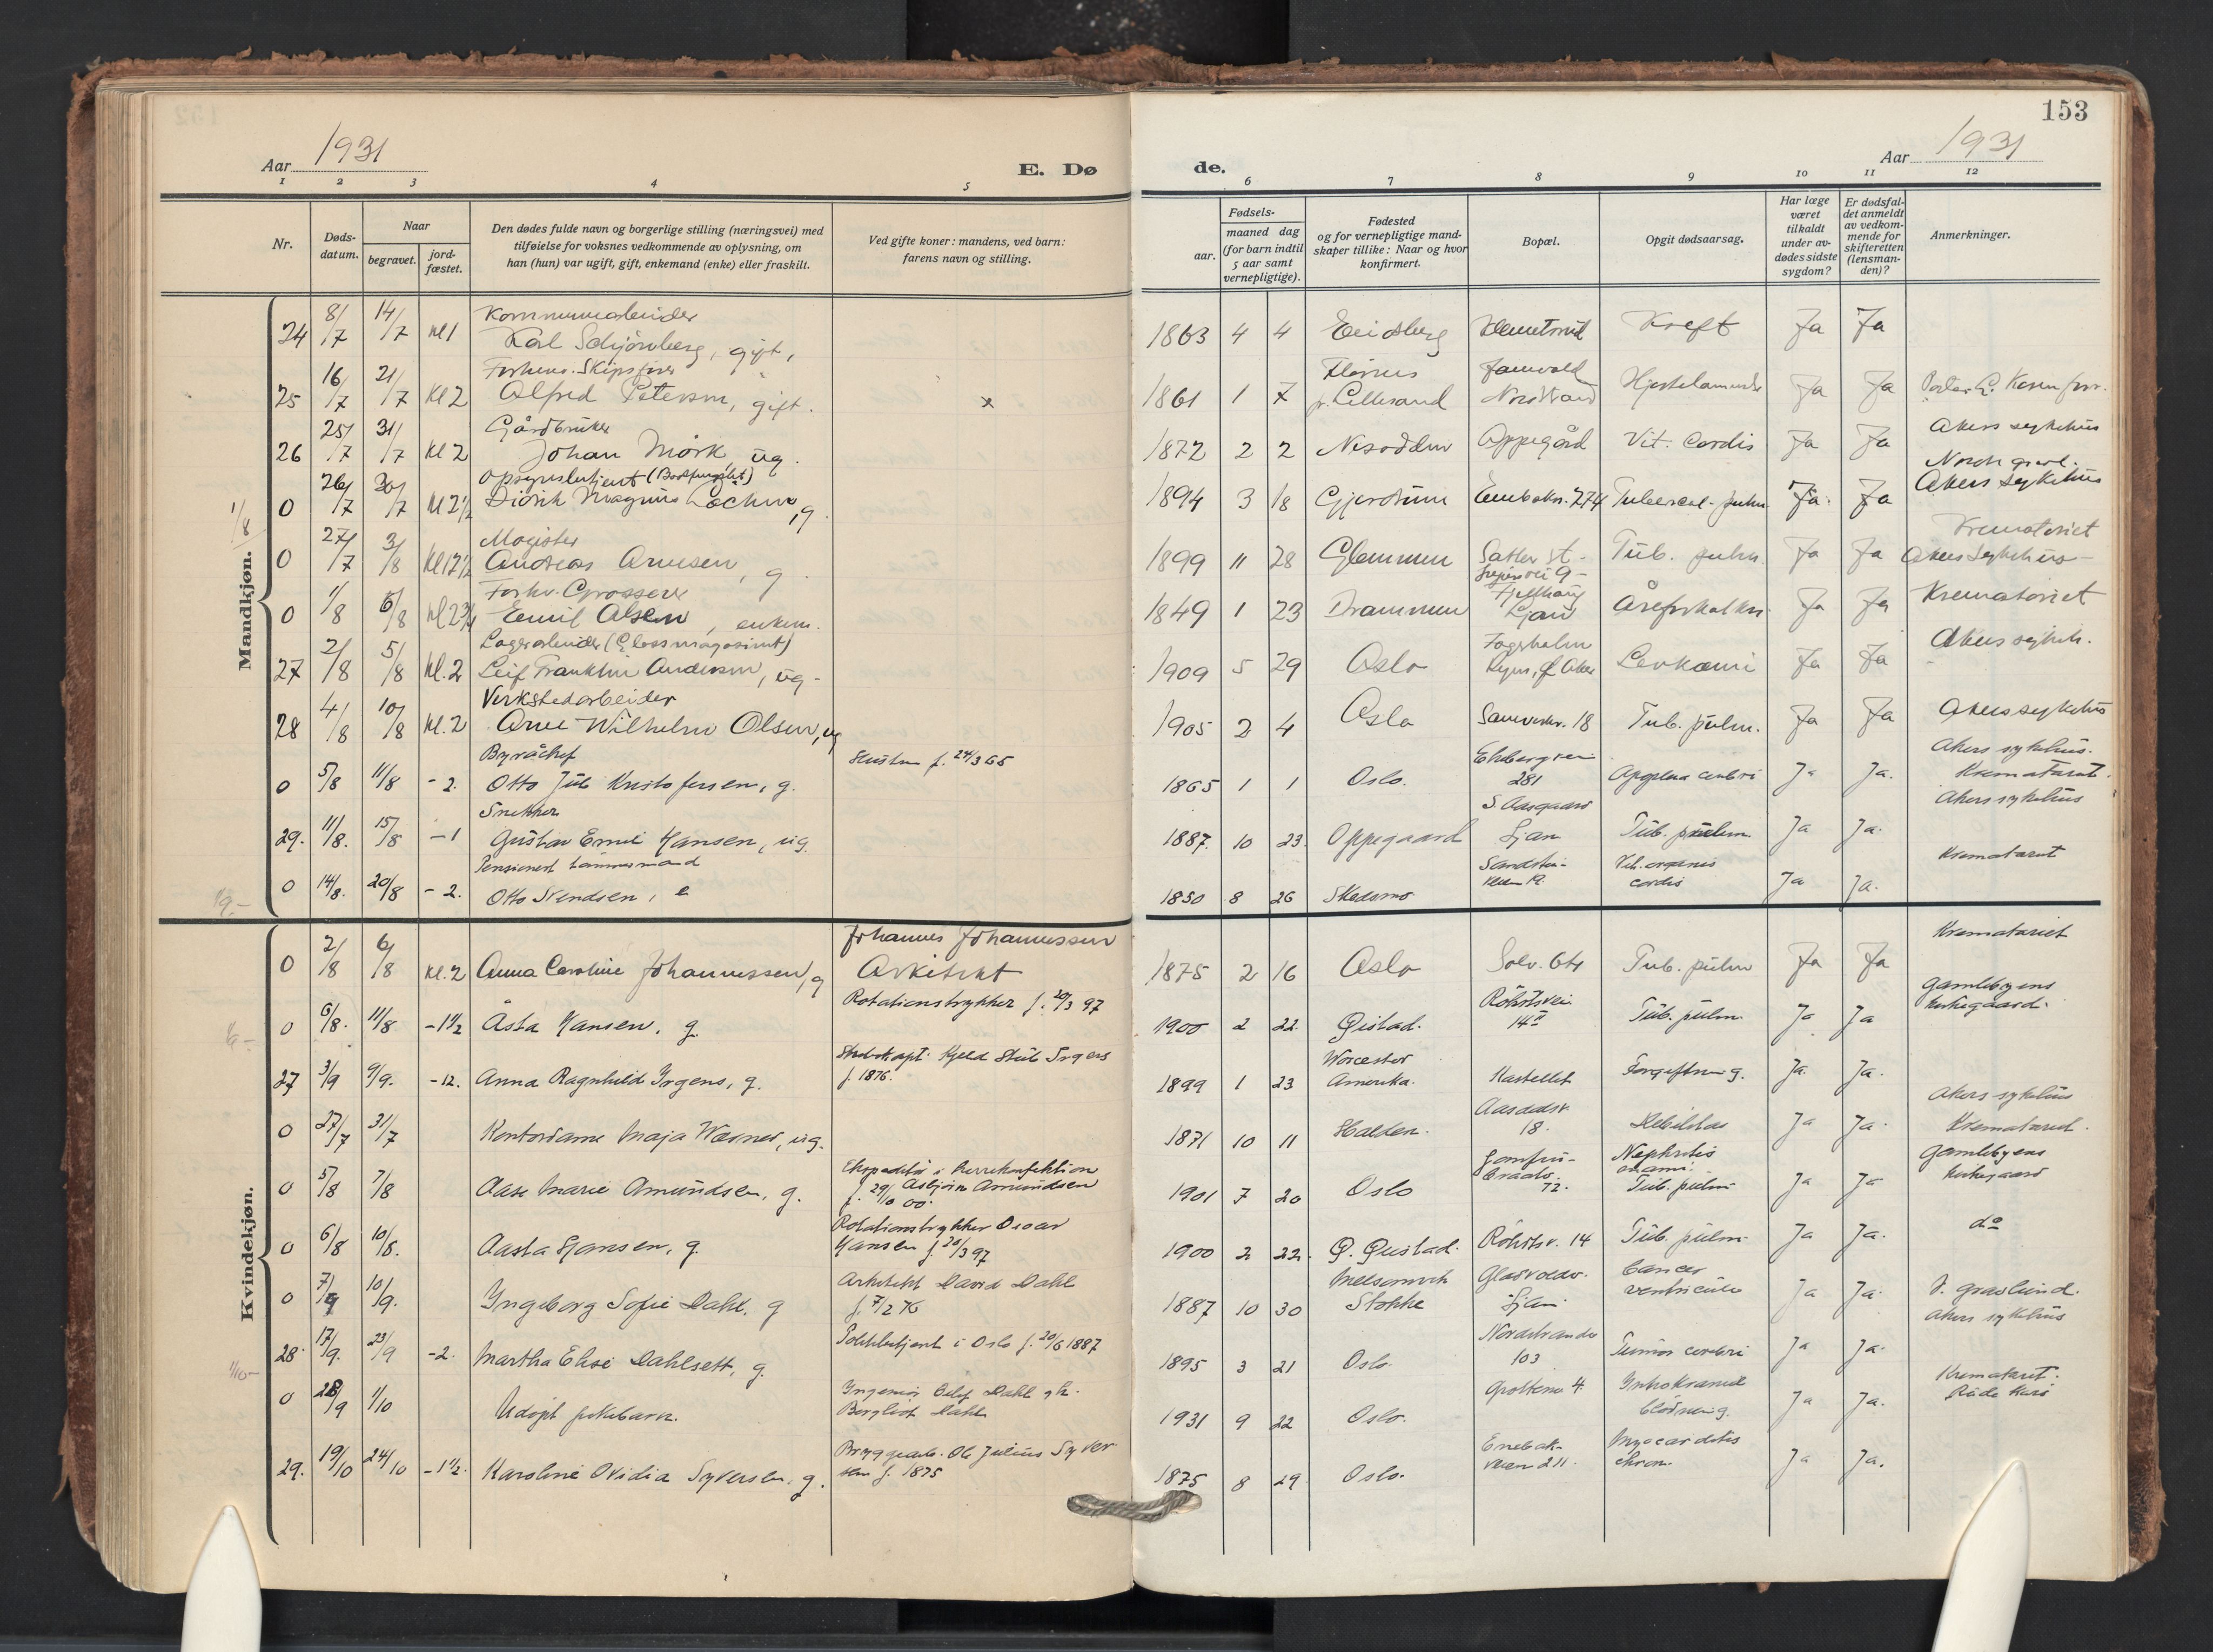 153
Aar 1931
E. Dø
de.
Aar 1931
1 2 3 4 5 6 7 8 9 10 11 12
Nr.
Døds-datum.
Naar
begravet.
jord-fæstet.
Den dødes fulde navn og borgerlige stilling (næringsvei) med
tilføielse for voksnes vedkommende av oplysning, om
han (hun) var ugift, gift, enkemand (enke) eller fraskilt.
Ved gifte koner: mandens, ved barn:
farens navn og stilling.
Fødsels-
aar. maaned dag
(for barn indtil
5 aar samt
vernepligtige).
Fødested
og for vernepligtige mand-
skaper tillike: Naar og hvor
konfirmert.
Bopæl.
Opgit dødsaarsag.
Har læge
været
tilkaldt
under av-
dødes sidste
sygdom?
Er dødsfal-
det anmeldt
av vedkom-
mende for
skifteretten
(lensman-
den)?
Anmerkninger.
Mandkjøn.
24 8/7 14/7 kl 1 Kommunearbeider
Karl Schjønberg, gift, 1863 4 4 Eidsberg Kreft Ja Ja
25 16/7 21/7 Kl 2 Forhenv. Skipsfører
Alfred Petersen, gift. x 1861 1 7 p. Lillesand Nordstrand Ja Ja
26 25/7 31/7 Kl 2 Gårdbruker
Johan Mörk, ug. 1872 2 2 Nesodden Oppegård Vit. Cordis Ja Ja Akers sykehus
0 26/7 30/7 Kl 2½ Opsynsbetjent (Bodsfengslet)
Didrik Magnus Lochen, g. 1894 3 18 Gjerdrum Enebakv. 274 Tubercul. pulm. Ja Ja Akers Sykehus
1/8
0 27/7 3/8 Kl 12½ Magister
Andreas Arnesen, g. 1899 11 28 Glemmen Tub. pulm. Ja Ja Krematoriet
Akers Sykehus
0 1/8 6/8 Kl 2¾ Forhv. Grosserer
Emil Olsen, enkem. 1849 1 23 Drammen Ljan Åreforkalkn. Ja Ja Krematoriet
27 2/8 5/8 Kl. 2 Lagerarbeider (Glassmagasinet)
Leif Franklin Andersen, ug. 1909 5 29 Oslo Fagerholm Levkæmi Ja Ja Akers sykeh.
28 4/8 10/8 Kl. 2 Verkstedarbeider
Arne Wilhelm Olsen, ug 1905 2 4 Oslo 18 Tub. pulm. Ja Ja Akers sykehus
0 5/8 11/8 - 2. Byråchef
Otto Jul. Kristofersen, g. Hustru f. 24/3 65 1865 1 1 Oslo. Ekebergveien
281 Apoplexia cerebri Ja Ja. Akers sykehus.
Krematoriet.
29. 11/8. 15/8 - 1 Snekker
Gustav Emil Hansen, ug. 1887. 10 23. Oppegaard S. Aasgaard
Ljan Tub. pulm Ja Ja. Akers sykehus
0 14/8. 20/8 - 2. Pensionert Lensmand
Otto Svendsen, e 1850 8 26 Skedsmo Vit. organis
cordis Ja Ja. Krematoriet
Kvindekjøn.
0 2/8 6/8 Kl. 2 Anna Caroline Johannessen, g Johannes Johannessen
Arkitekt 1875 2 16 Oslo Solv. 64 Tub. pulm Ja Ja Krematoriet
0 6/8. 11/8 - 1½ Åsta Hansen, g. Rotationstrykker f. 20/3 97 1900 2 22. Gistad. Röhrtsvei
14 II Tub. pulm. Ja Ja Gamlebyens
kirkegaard.
27 3/9 9/9. - 12. Anna Ragnhild Irgens, g. Kjeld Stub Irgens
f. 1876. 1899 1 23 Worcester
Amerika. Kastellet Forgiftning. Ja. Ja.
0 27/7 31/7 Kontordame Maja Werner, ug. 1871 10 11 Halden. 18. Ja Ja. Akers sykehus
Krematoriet.
0 5/8 7/8 Aase Marie Amundsen, g. Ekspeditör i herrekonfektion
f. 29/10 00. Asbjörn Amundsen 1901 7 20 Oslo Jomfru-
braatv.
72. Nephritis
Tub. pulm Ja Ja Gamlebyens
kirkegaard
0 6/8 10/8. Aasta Hansen, g. Rotationstrykker Oscar
Hansen f. 20/3 97 1900 2 22. Röhrtsv. 14 Tub. pulm. Ja Ja. do
0 7/9 10/9. Ingeborg Sofie Dahl, g Arkitekt David Dahl
f. 7/2 76 1887 10 30 Melsomvik
Stokke Ljan Cancer
ventriculi Ja Ja.
28. 17/9. 23/9 - 2. Martha Elise Dahlsett, g. Politibetjent i Oslo f. 20/6 1887 1895 3 21 Oslo. Nordstrandv
103 Tumor cerebri Ja Ja. Akers sykehus
1/10
0 28/9 1/10 Udöpt pikebarn. Ingeniör Dahl gh.
Bergliot Dahl 1931 9 22 Oslo. Intrakraniel
blödning. Ja Ja. Krematoriet.
Röde Kors
29. 19/10 24/10 - 1½. Karoline Ovidia Syversen, g. Bryggearb. Ole Julius Syver
sen f. 1875 1875 8 29 Oslo. Enebak-
veien 211. Myocarditis
chron. Ja Ja.